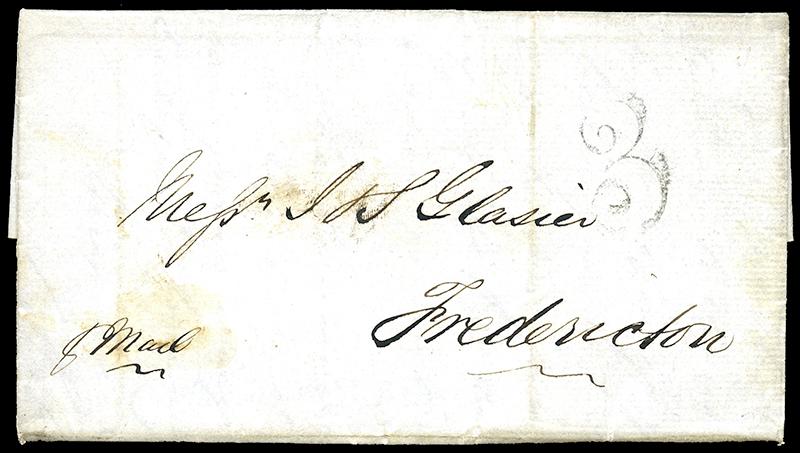 3
Messrs J & S Glasier
Fredericton
p Mail